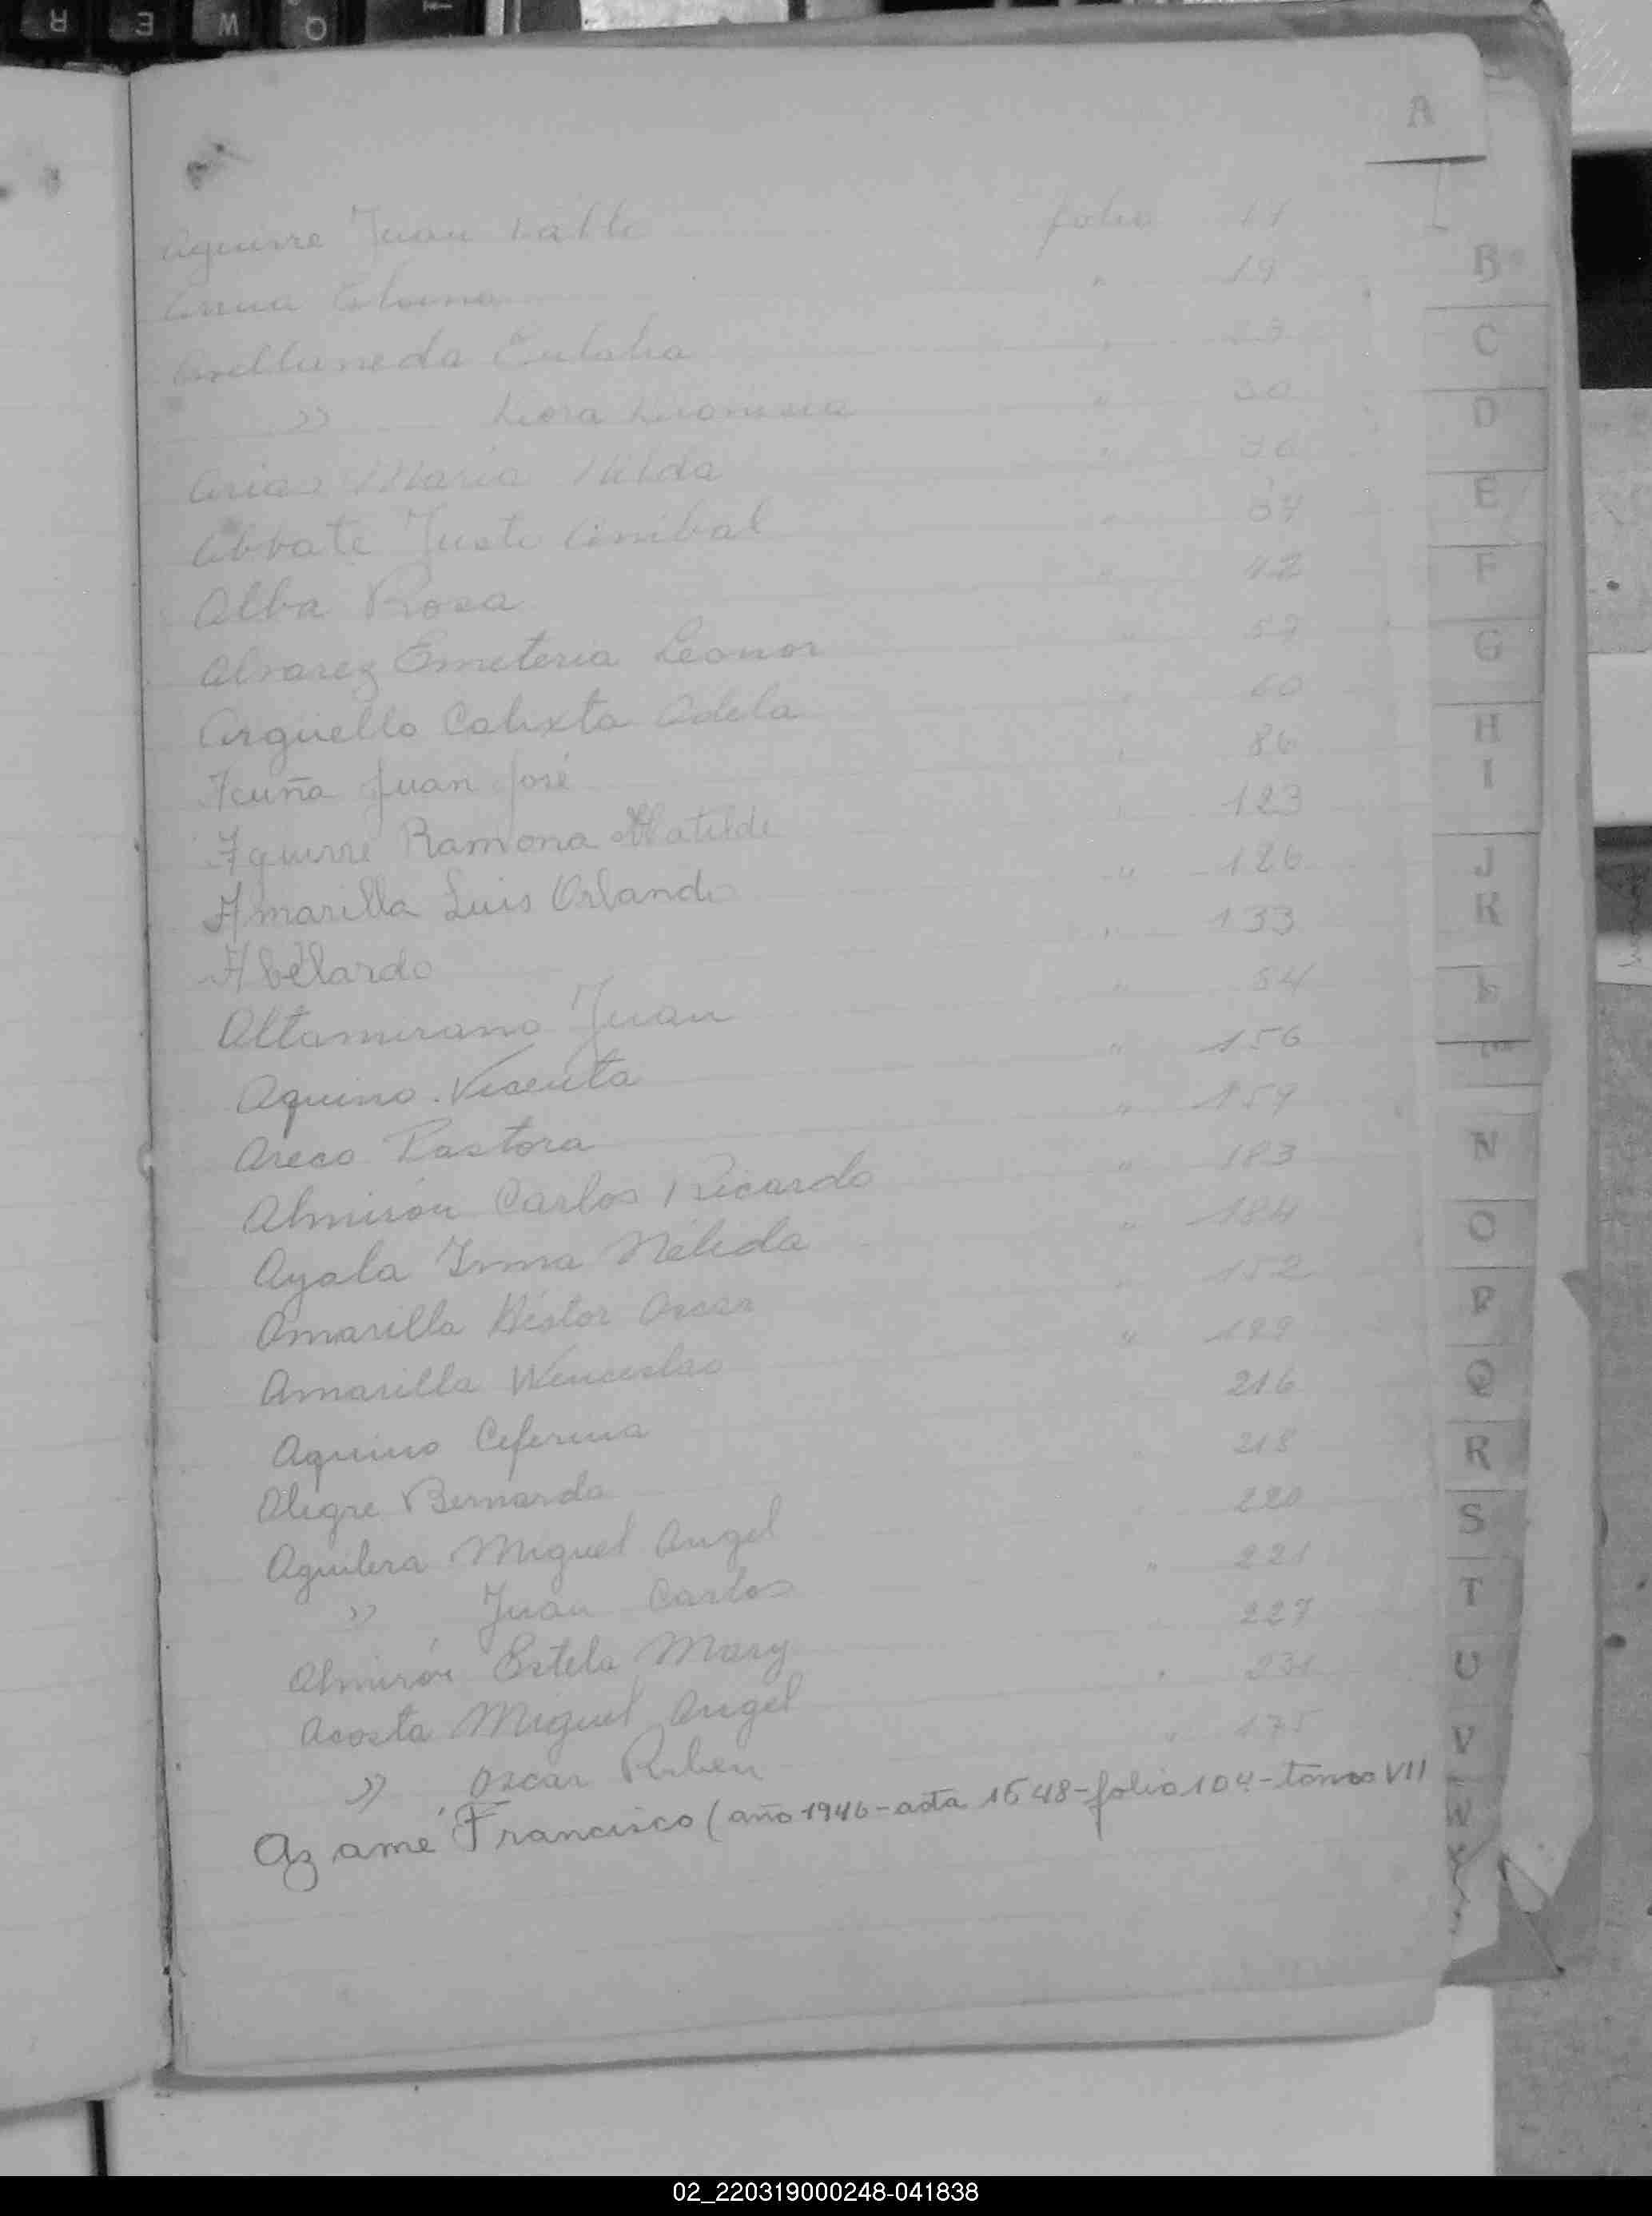 A
Aguirre Juan Pablo folio 11
" 19
Avellaneda Eulalia "
" " 30
Arias Maria Hilda "
Abbate Juste Anibal "
Alba Rosa " 42
Alvarez Emeteria Leonor " 57
Arguello Calixta Adela " 60
Acuña Juan José " 86
Aguirre Ramona Matilde " 123
Amarilla Luis Orlando " 126
Abelardo " 133
Altamirano Juan " 54
Aquino Vicenta " 156
Areco Pastora " 159
Almirón Carlos Ricardo " 183
Ayala Irma Nélida " 184
Amarilla Néstor Oscar " 152
Amarilla Wenceslao " 199
Aquino Ceferina 216
Alegre Bernarda 218
Aguilera Miguel Angel 220
" Juan Carlos " 221
Almirón Estela Mary 227
Acosta Miguel Angel " 231
" Oscar Ruben " 175
Azamé Francisco (año 1946-acta 1548-folio tomo VII
B
C
D
E
F
G
H
I
J
K
L
N
O
P
Q
R
S
T
U
V
W
02_220319000248-041838